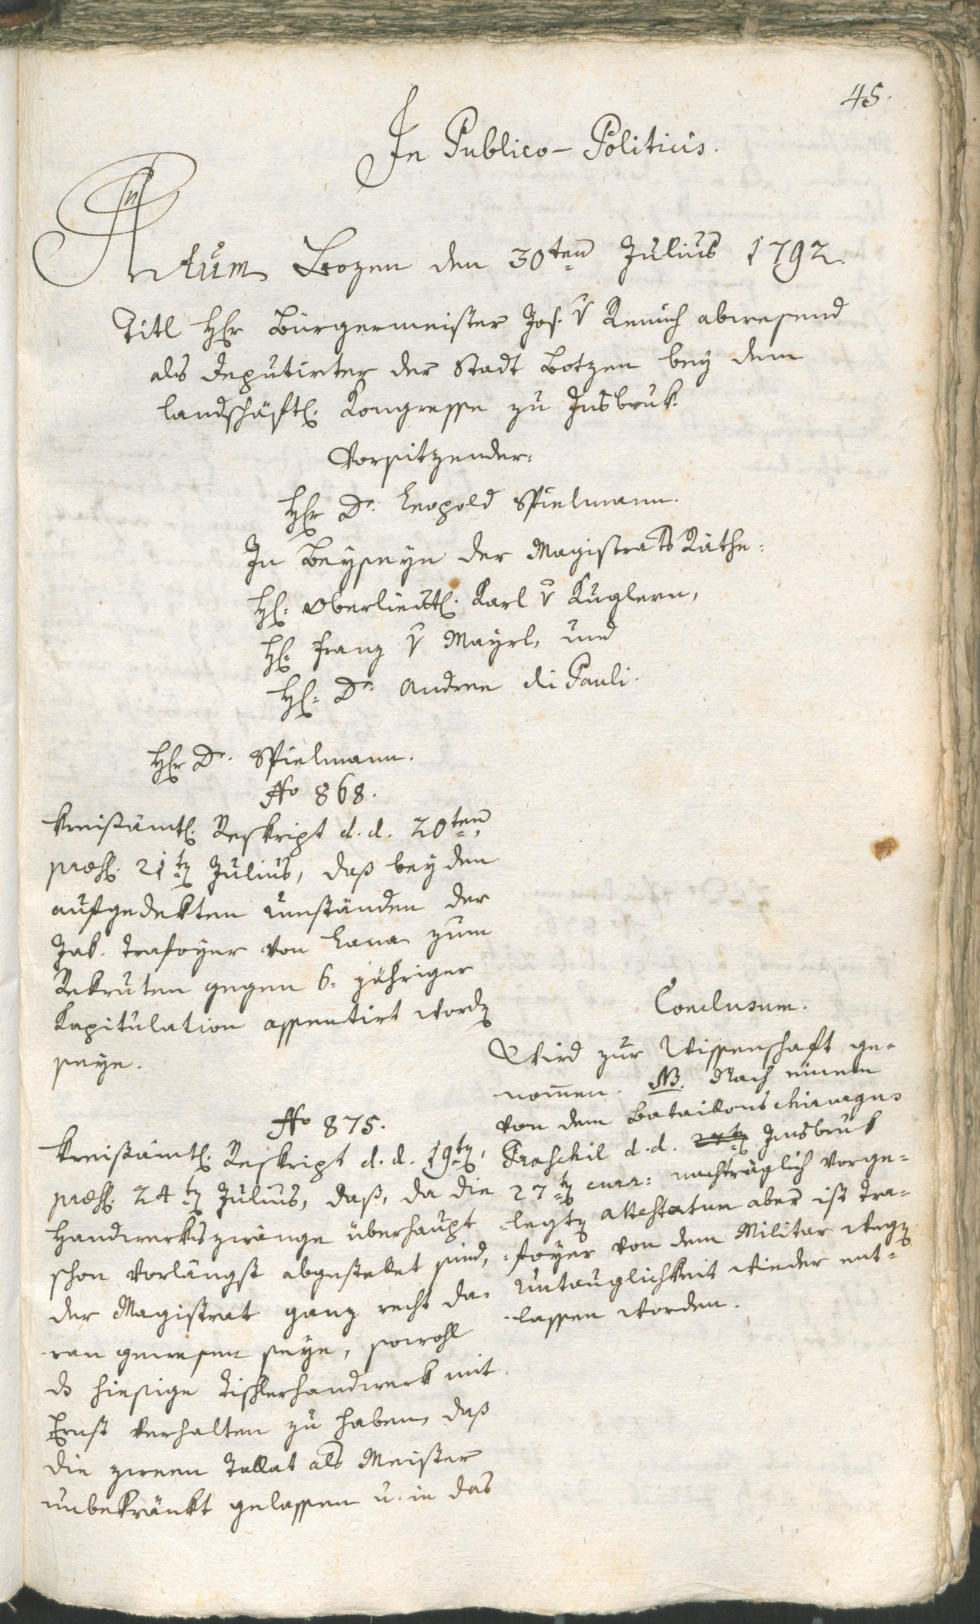 45.
In Publico-Politicis.
Actum Bozen den 30ten Julius 1792.
Titl Hr Bürgermeister Jos. v Remich abwesend
als Deputirter der Stadt Botzen bey dem
landschäftl. Kongresse zu Insbruk.
Vorsitzender:
Hr Dr. Leopold Spielmann.
In Beyseyn der Magistrats Räthe:
H: Oberlieut. Karl v Kuglern,
H: Franz v Mayrl, und
H: Dr. Andree di Pauli.
Hr Dr. Spielmann.
No 868.
Kreißämtl. Reskript d. d. 20ten,
præs. 21tn Julius, daß bey den
aufgedekten Umständen der
Jak. Trafoyer von Lana zum
Rekruten gegen 6. jähriger
Kapitulation assentirt wordn
seye.
Conclusum.
Wird zur Wissenschaft ge-
nommen. NB. Nach einem
von dem Bataillons chirurgus
Fraschil d. d. Insbruk
27tn curr: nachträglich vorge-
legtn Attestatum aber ist Tra-
foyer von dem Militär wegn
Untauglichkeit wieder ent-
lassen worden.
No 875.
Kreißämtl. Reskript d. d. 19tn,
præs. 24tn Julius, daß, da die
Handwerkszwänge überhaupt
schon vorlängst abgestelt sind,
der Magistrat ganz recht da-
ran gewesen seye, sowohl
ds hiesige Tischlerhandwerk mit
Ernst verhalten zu haben, daß
die zween Tallat als Meister
unbekränkt gelassen u. in das